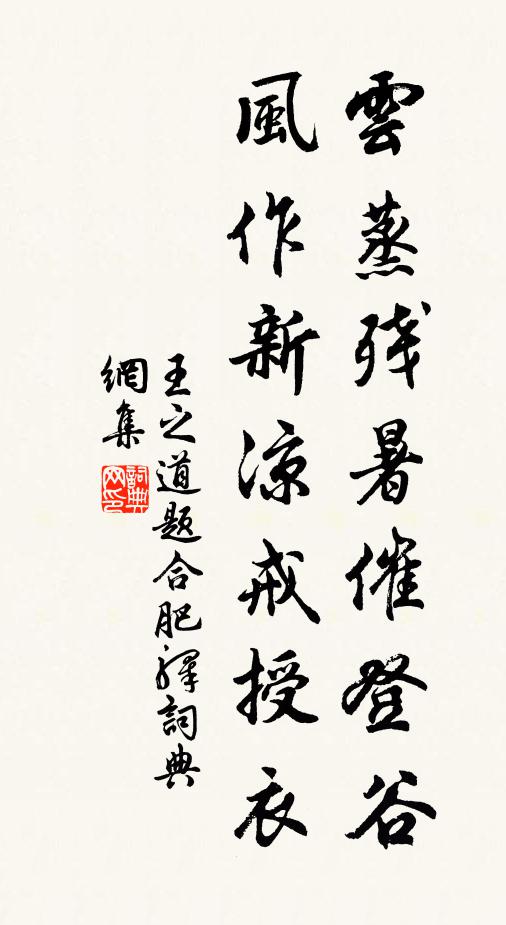 雲蒸殘暑催登谷
風作新涼戒授衣
王之道题合肥驛詞典
網集
詞典
网印